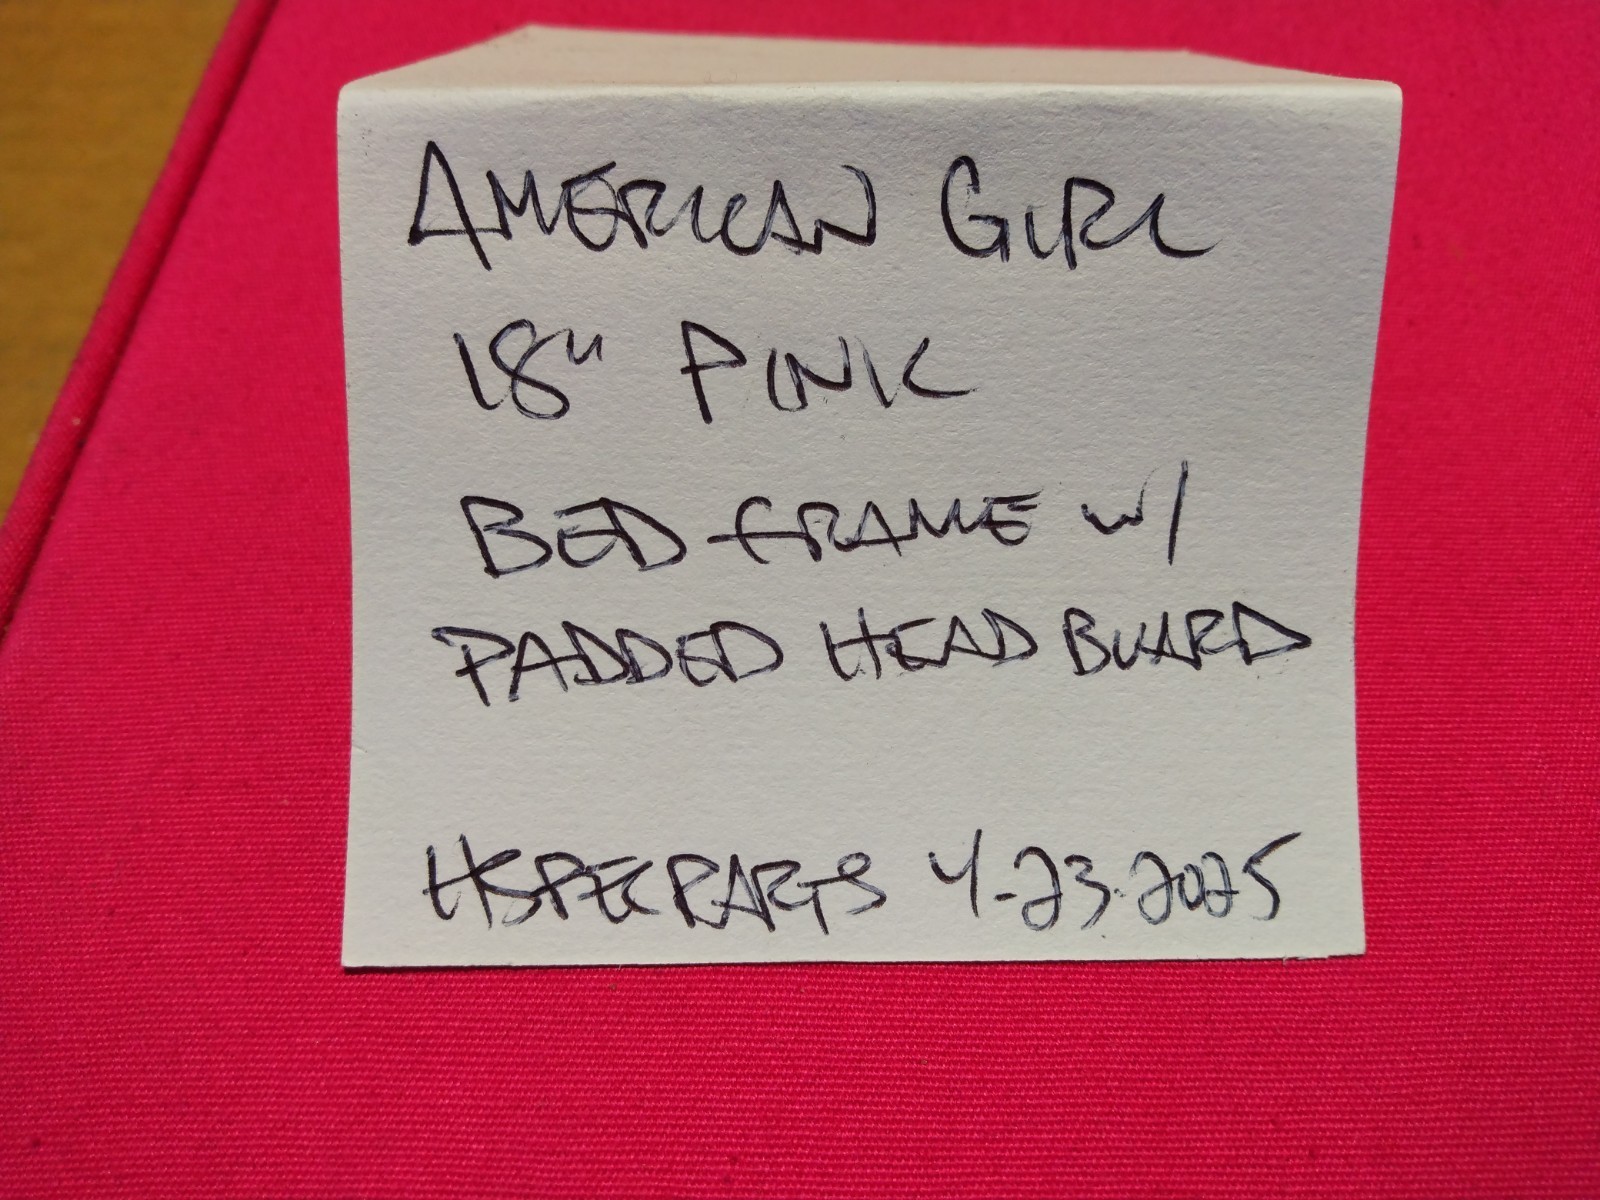 AMERICAN GIRL
18" PINK
BED FRAME W/
PADDED HEAD BOARD
HSPECPARTS 4-23-2025